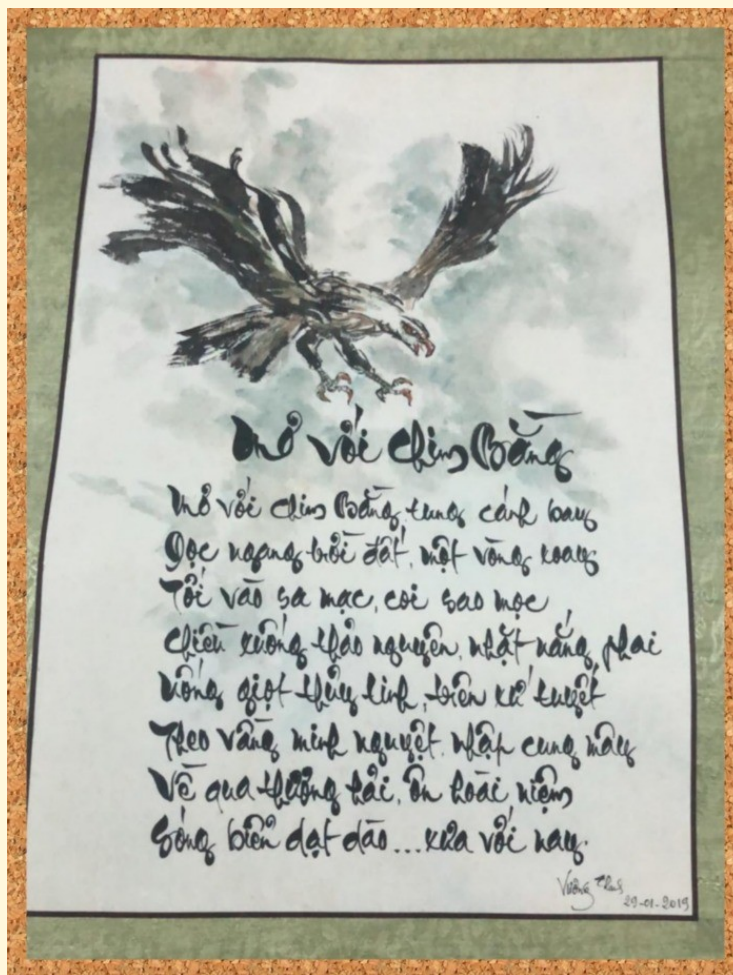 Mơ với chim Bằng
Mơ với chim Bằng, tung cánh bay
Dọc ngang trời đất, một vòng xoay
Tối vào sa mạc, coi sao mọc
Chiều xuống thảo nguyên, nhặt nắng phai
Uống giọt thủy tinh, trên xứ tuyết
Theo vầng minh nguyệt, nhập cung mây
Về qua thượng hải, ôn hoài niệm
Sóng biển dạt dào...xưa với nay.
Vương
29-01-2019